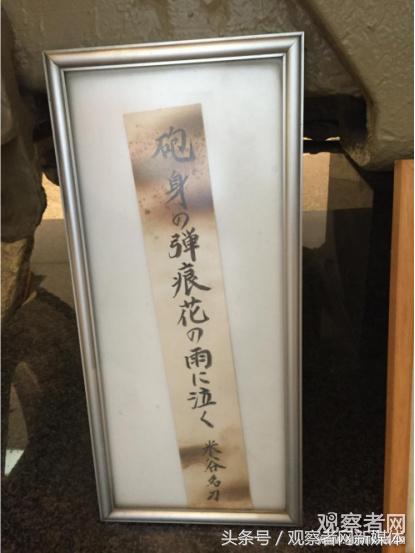 砲身の弾痕花の雨に泣く
米谷
观察者网
头条号/观察者网新媒体